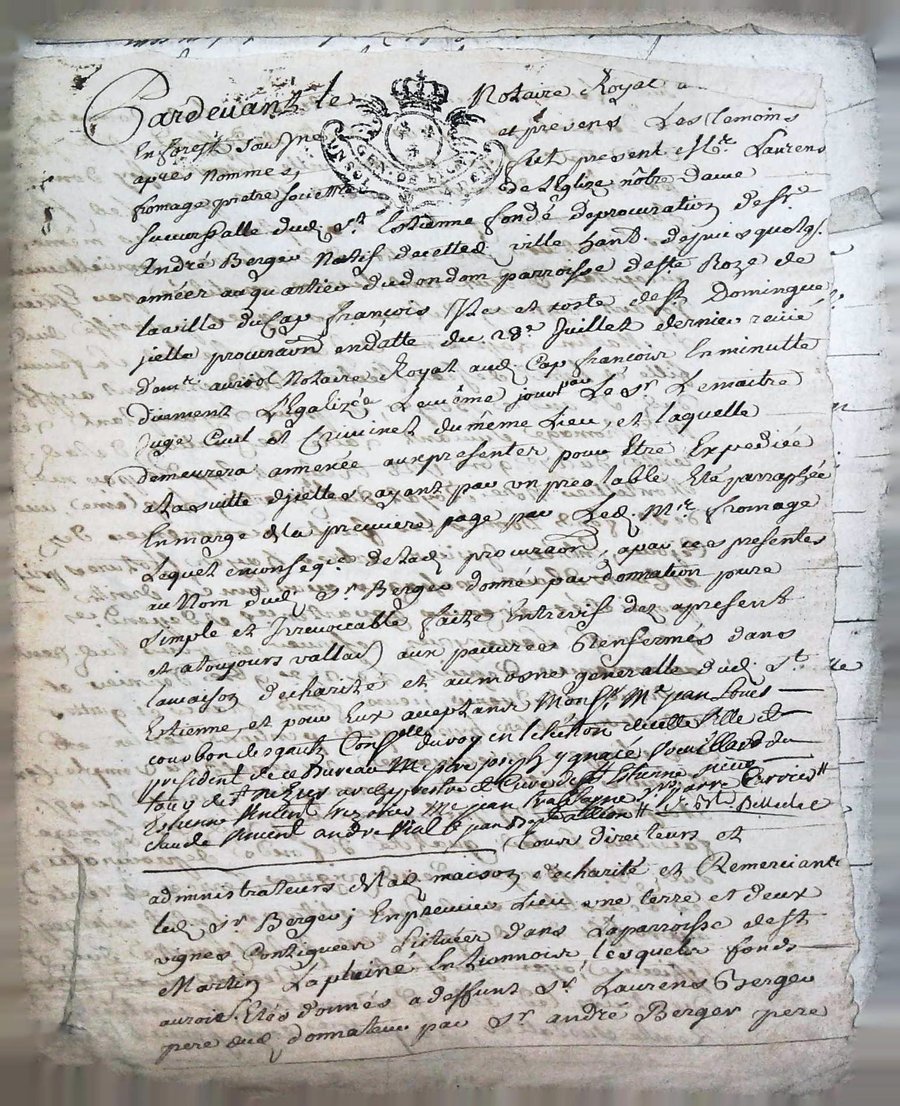 Pardevant le Notaire Royal a
En forest soussigné et presens Les temoins
apres Nommes, fut present Mr. Laurens
fromage pretre societtre de L'Eglise nôtre dame
succurssalle dud. St. Estienne fondé deprocuration de Sr.
André Berger Natif decelled. ville habt. depuis quelqs.
années au quartier dudondom parroisse de Ste. Roze de
la ville du Cap françois Isle et coste de St. Domingue
jcelle procuraon. endatte du 28e. Juillet dernier
Notaire Royal aud. Cap françois En minutte
duement Légalizée Le même jour par Le Sr. Lemaitre
Juge Civil et Criminel du même Lieu, et laquelle
demeurera annexée aux presentes pour être Expediée
a la suitte d'jcelles ayant par un prealable Eté parraphée
En marge de la premiere page par Led. Mr. fromage
Lequel en conseqce. de lad. procuraon., a par ces presentes
au Nom dud. Sr. Berger donné par donnation pure
simple et Irrevoccable faite Entrevifs des apresent
et atoujours vallable aux pauvres Renfermés dans
la maison de charité et aumosne generalle dud. St.
Estienne, et pour Eux acceptans Monsr. Me. jean Louis
courbon desgaux Consller. du roy en l'election de cette Ville et
president de ce Bureau Me. pierre joseph ygnace
de St. Estienne
Estienne Vincent trezorier Me. jean
claude Vincent andré Vial
Tous directeurs et
administrateurs de lad. maison de charité et Remerciant
led. Sr. Berger; En premier Lieu une terre et deux
vignes Contigues situées dans La parroisse de St.
Martin La plaine En Lionnois, lesquels fonds
auroit Etés donnés a deffunt Sr. Laurens Berger
pere dud. donnateur par Sr. andré Berger pere